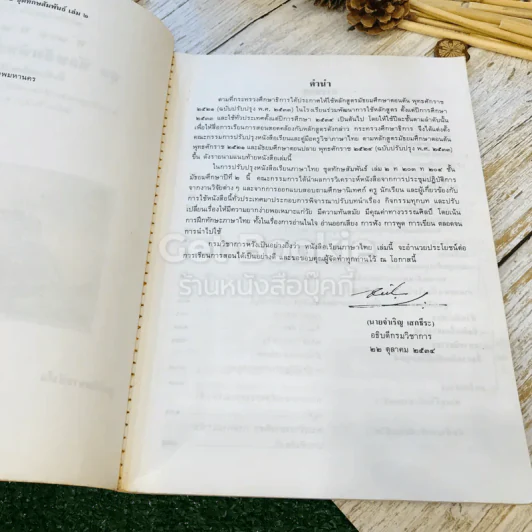 ชุดทักษสัมพันธ์ เล่ม ๒
คำนำ
ตามที่กระทรวงศึกษาธิการได้ประกาศให้ใช้หลักสูตรมัธยมศึกษาตอนต้น พุทธศักราช
๒๕๒๑ (ฉบับปรับปรุง พ.ศ. ๒๕๓๓) ในโรงเรียนร่วมพัฒนาการใช้หลักสูตร ตั้งแต่ปีการศึกษา
๒๕๓๓ และใช้ทั่วประเทศตั้งแต่ปีการศึกษา ๒๕๓๔ เป็นต้นไป โดยให้ใช้ปีละชั้นตามลำดับนั้น
เพื่อให้สื่อการเรียนการสอนสอดคล้องกับหลักสูตรดังกล่าว กระทรวงศึกษาธิการ จึงได้แต่งตั้ง
คณะกรรมการปรับปรุงหนังสือเรียนและคู่มือครูวิชาภาษาไทย ตามหลักสูตรมัธยมศึกษาตอนต้น
พุทธศักราช ๒๕๒๑ และมัธยมศึกษาตอนปลาย พุทธศักราช ๒๕๒๔ (ฉบับปรับปรุง พ.ศ. ๒๕๓๓)
ขึ้น ดังรายนามแนบท้ายหนังสือเล่มนี้
ในการปรับปรุงหนังสือเรียนภาษาไทย ชุดทักษสัมพันธ์ เล่ม ๒ ท ๒๐๓ ท ๒๐๔ ชั้น
มัธยมศึกษาปีที่ ๒ นี้ คณะกรรมการได้นำผลการวิเคราะห์หนังสือจากการประชุมปฏิบัติการ
จากงานวิจัยต่าง ๆ และจากการออกแบบสอบถามศึกษานิเทศก์ ครู นักเรียน และผู้เกี่ยวข้องกับ
การใช้หนังสือนี้ทั่วประเทศมาประกอบการพิจารณาปรับบทนำเรื่อง กิจกรรมทุกบท และปรับ
เปลี่ยนเรื่องให้มีความยากง่ายพอเหมาะแก่วัย มีความทันสมัย มีคุณค่าทางวรรณศิลป์ โดยเน้น
การฝึกทักษะภาษาไทย ทั้งในเรื่องการอ่านในใจ อ่านออกเสียง การฟัง การพูด การเขียน ตลอดจน
การนำไปใช้
กรมวิชาการหวังเป็นอย่างยิ่งว่า หนังสือเรียนภาษาไทย เล่มนี้ จะอำนวยประโยชน์ต่อ
การเรียนการสอนได้เป็นอย่างดี และขอขอบคุณผู้จัดทำทุกท่านไว้ ณ โอกาสนี้
ร้านหนังสือบุ๊คกี้
(นายจำเริญ เสกธีระ)
อธิบดีกรมวิชาการ
๒๒ ตุลาคม ๒๕๓๔